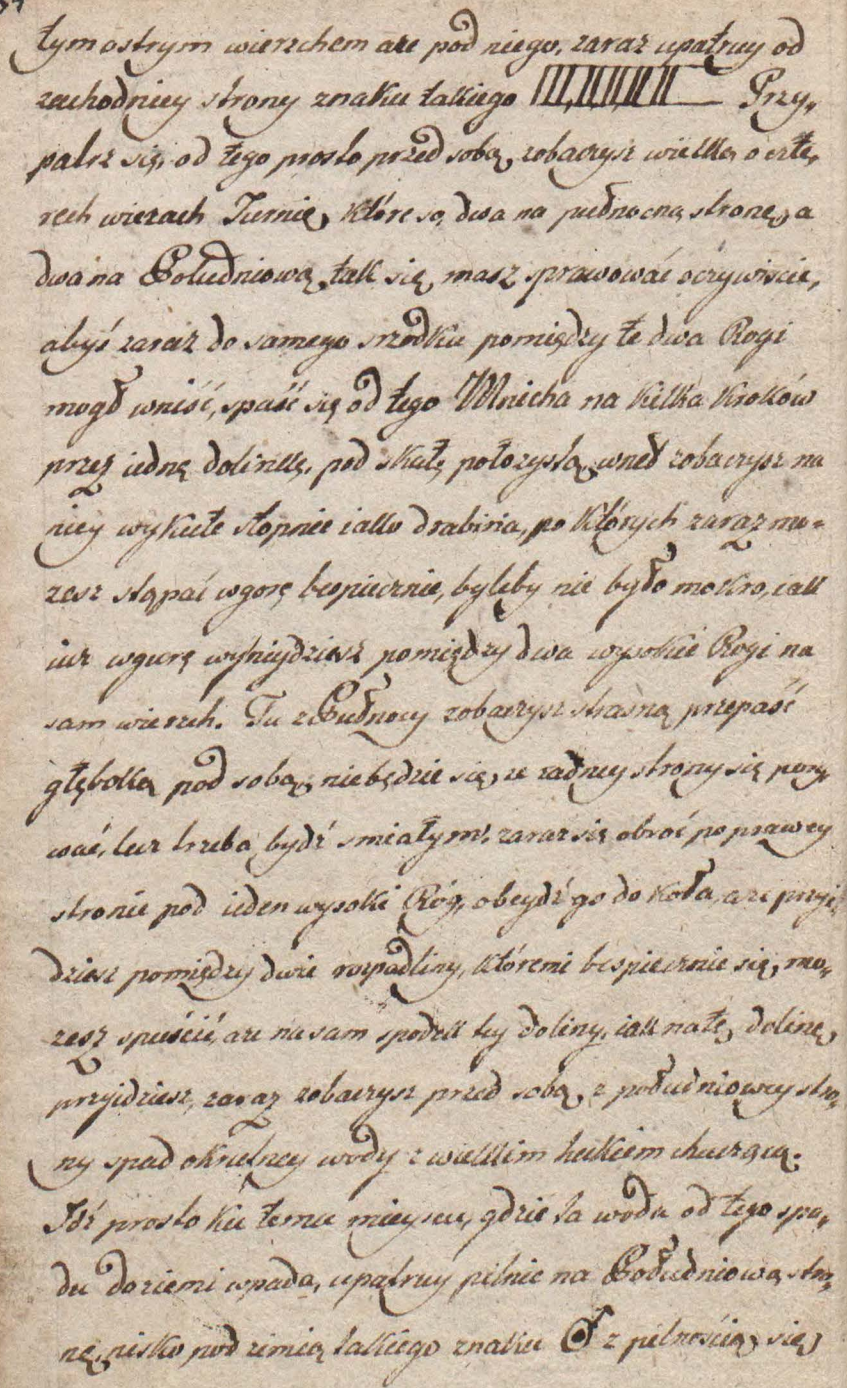 tym ostrym wierzchem aze pod niego, zaraz upatruy od
zachodniey strony znaku takiego Przy„
patrz się, od tego prosto przed sobą, zobaczysz wielką o czte„
rech wiezach Turnię, które są, dwa na pułnocną stronę, a
dwa na Południową, tak się, masz sprawować oczywiscie,
abyś zaraz do samego srzodku pomiędzy te dwa Rogi
mogł wniść, spaść się od tego Mnicha na kilka kroków
przez iednę dolinkę, pod skałę połozystą, wnet zobaczysz na
niey wykute stopnie iako drabina, po których zaraz mo=
zesz stąpać wgorę bespiecznie, byleby nie było mokro, iak
iuz wgurę wyniydziesz pomiędzy dwa wysokie Rogi na
sam wierzch. Tu z Pułnocy zobaczysz strasną przepaść
głęboką pod sobą, niebędzie się, ze zadney strony się pory„
wać, lecz trzeba bydź smiałym, zaraz się obroć po prawey
stronie pod ieden wysoki Róg, obeydź go do koła, aze przyi„
dziesz pomiędzy dwie rozpadliny, któremi bespiecznie się, mo„
zesz spuścić, aze na sam spodek tey doliny, iak natę, dolinę,
przyidziesz, zaraz zobaczysz przed sobą, z południowey stro„
ny spad okrutney wody z wielkim hukiem huczącą.
Idź prosto ku temu mieyscu, gdzie ta woda od tego spa„
du do ziemi wpada, upatruy pilnie na Południową stro„
nę, nisko pod zimią takiego znaku ♂ z pilnością, się,